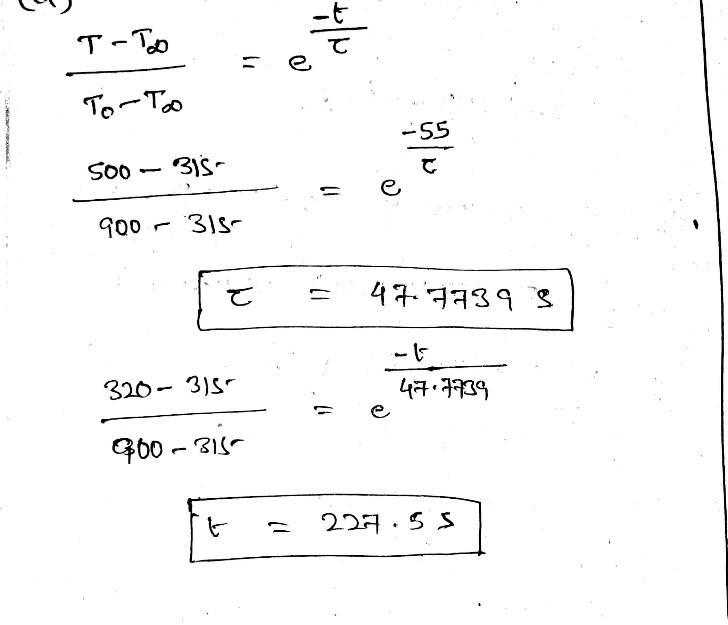 (T - T∞)/(T0 - T∞) = e^(-t/τ)
(500 - 315)/(900 - 315) = e^(-55/τ)
τ = 47.7739 s
(320 - 315)/(900 - 315) = e^(-t/47.7739)
t = 227.5 s